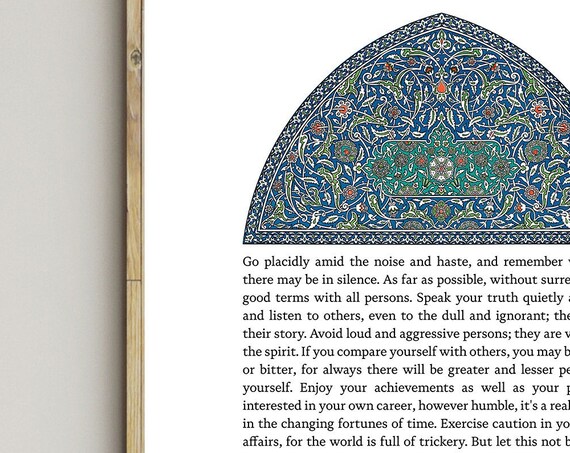 Go placidly amid the noise and haste, and remember
there may be in silence. As far as possible, without surre
good terms with all persons. Speak your truth quietly a
and listen to others, even to the dull and ignorant; the
their story. Avoid loud and aggressive persons; they are v
the spirit. If you compare yourself with others, you may b
or bitter, for always there will be greater and lesser pe
yourself. Enjoy your achievements as well as your p
interested in your own career, however humble, it's a real
in the changing fortunes of time. Exercise caution in yo
affairs, for the world is full of trickery. But let this not b